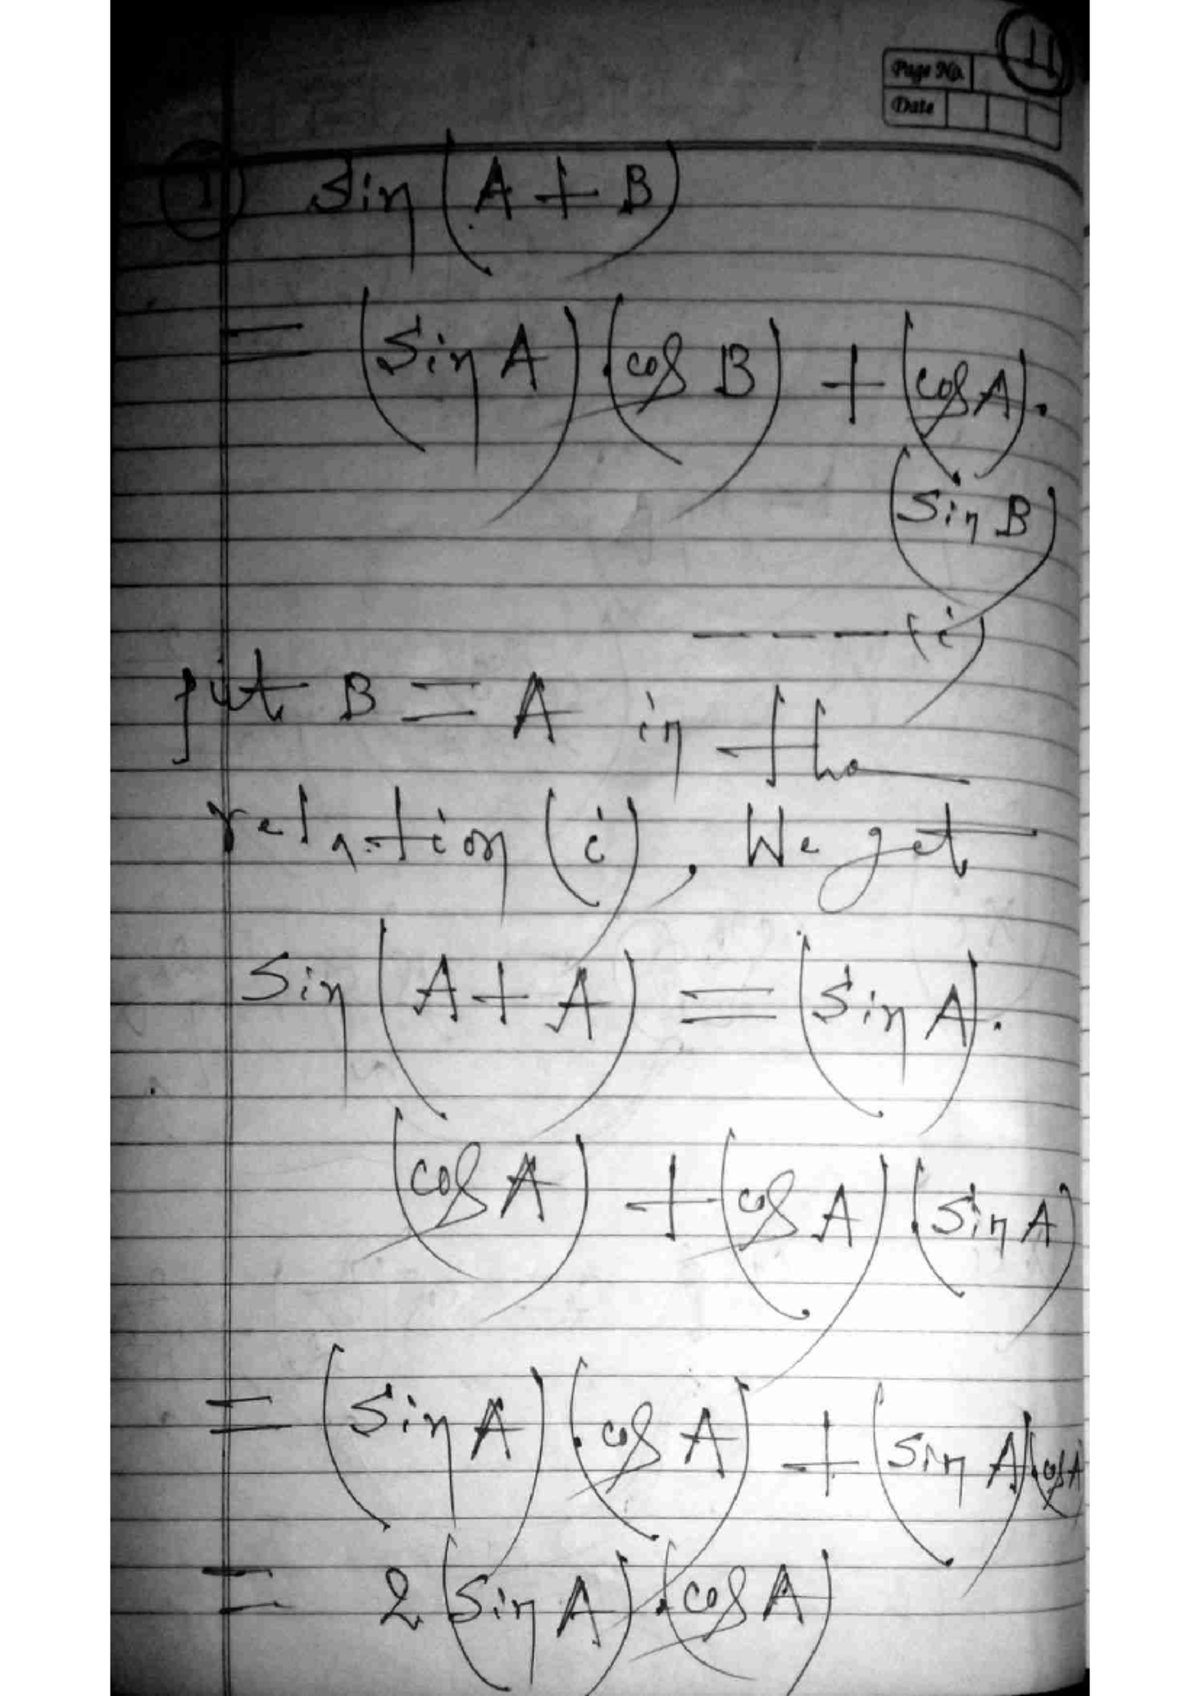 11
Page No.
Date
1 Sin (A + B)
= (Sin A).(cos B) + (cos A).
(Sin B)
- - - - (i)
put B = A in the
relation (i), We get
Sin (A + A) = (Sin A).
(cos A) + (cos A).(Sin A)
= (Sin A).(cos A) + (Sin A).(cos A)
= 2 (Sin A).(cos A)